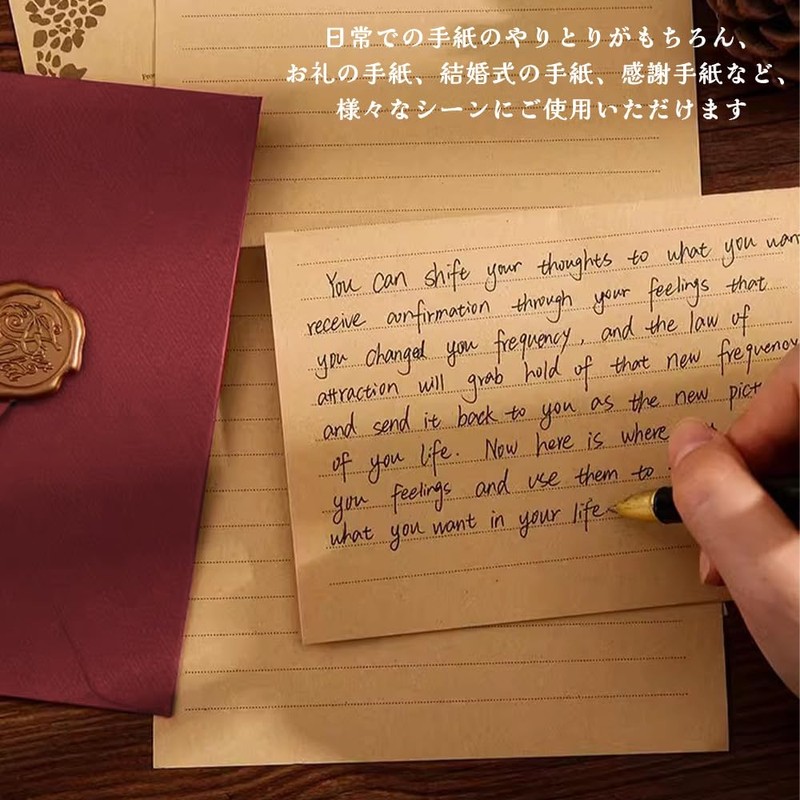 日常での手紙のやりとりがもちろん、
お礼の手紙、結婚式の手紙、感謝手紙など、
様々なシーンにご使用いただけます
You can shift your thoughts to what you
receive confirmation through your feelings that
you changed you frequency, and the law of
attraction will grab hold of that new frequency
and send it back to you as the new
of you life. Now here is where
you feelings and use them to
what you want in your life